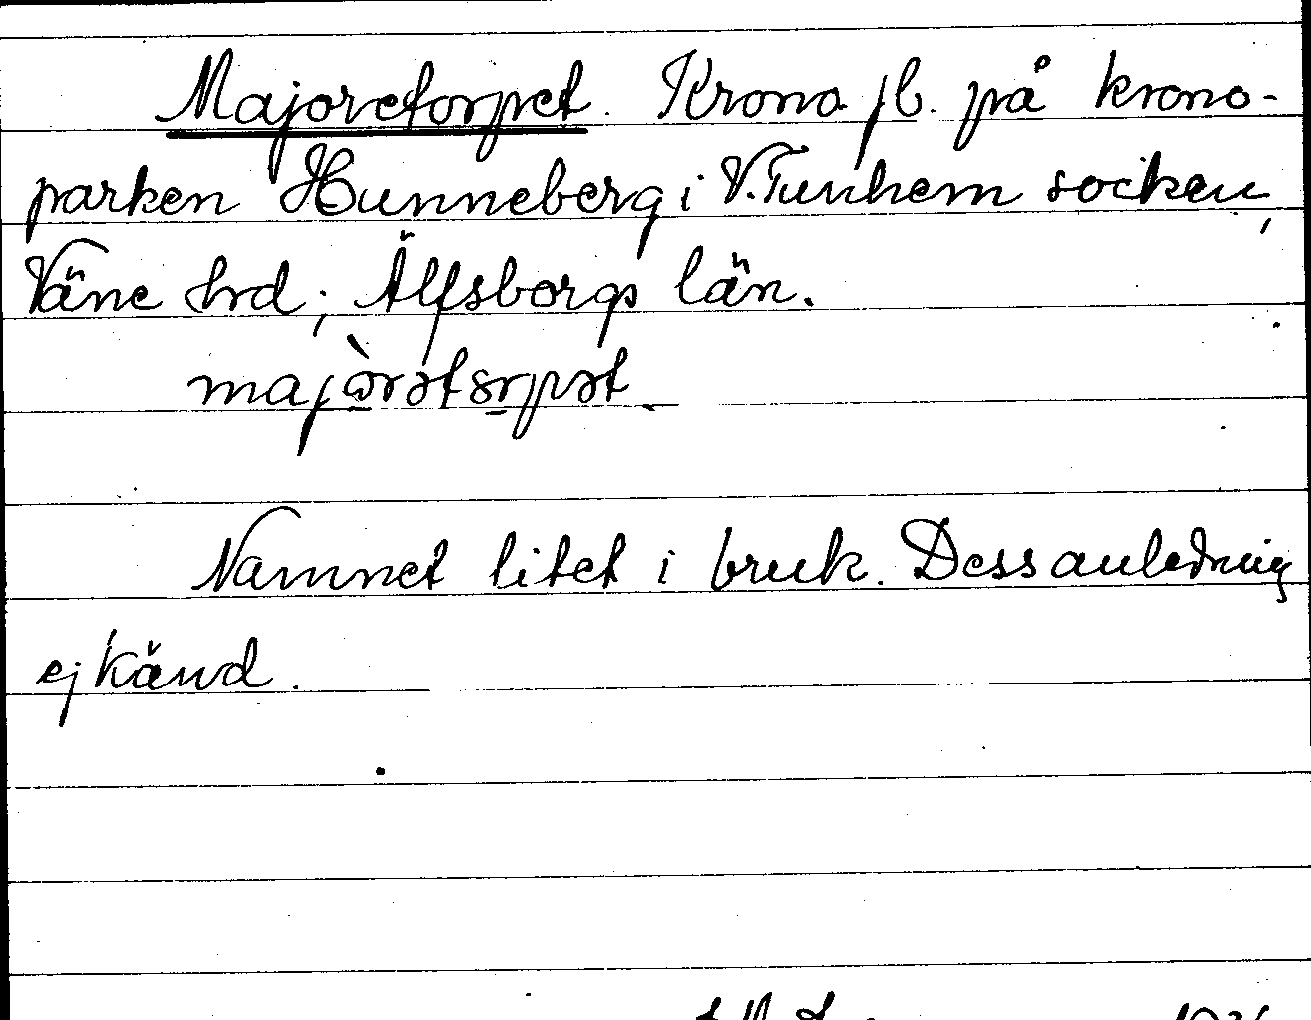 Majoretorpet. Krono fb. på krono-
parken Hunneberg i V. Tunhem socken,
Väne hrd; Älfsborgs län.
Namnet litet i bruk. Dess anledning
ej känd.